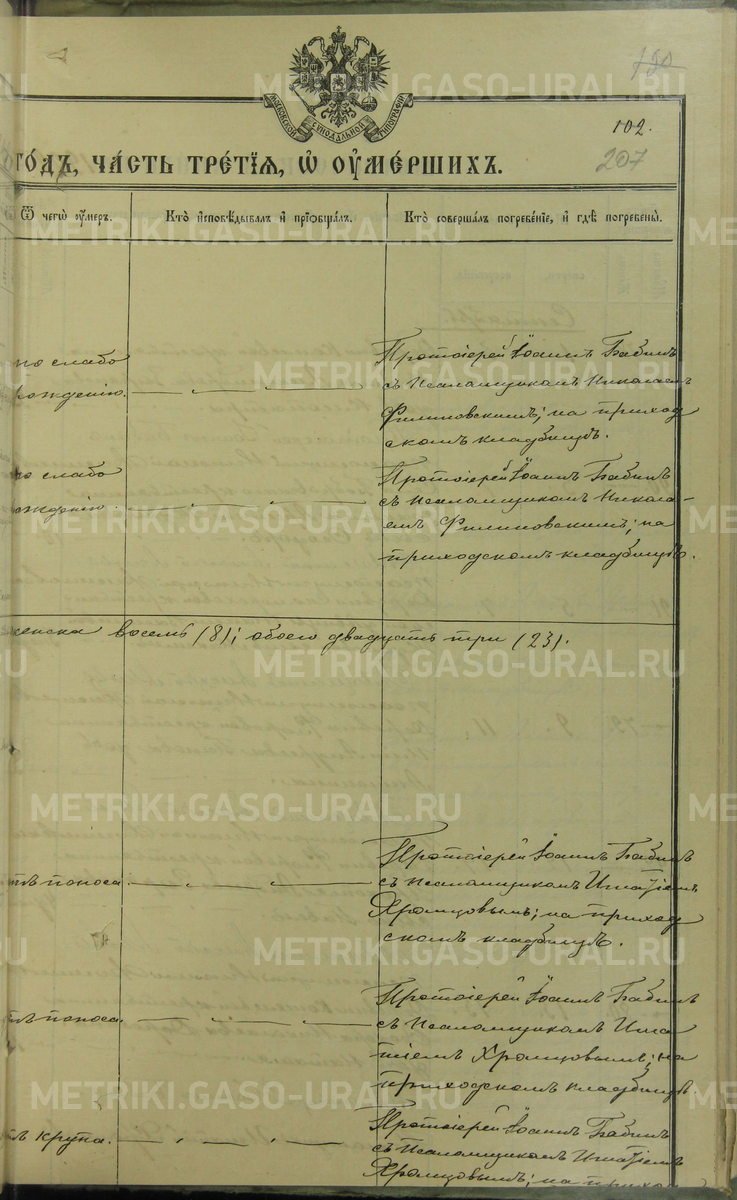 130
102.
207
МОСКОВСКОЙ СѴНОДАЛЬНОЙ ТИПОГРАФІИ
ГО́ДЪ, ЧА́СТЬ ТРЕ́ТЇѦ, Ѡ҆ ОУ҆МЕ́РШИХЪ.
Ѿ чегѡ̀ ᲂу҆́меръ.
Кто̀ и҆сповѣ́дывалъ и҆ прїѡбща́лъ.
Кто̀ соверша́лъ погребе́нїе, и҆ гдѣ̀ погребены̀.
по слабо
рожденію.
Протоіерей Іоаннъ Бабинъ
съ Псаломщикомъ Николаемъ
Филиповскимъ; на приход
скомъ кладбищѣ.
по слабо
рожденію.
Протоіерей Іоаннъ Бабинъ
съ Псаломщикомъ Никола-
емъ Филиповскимъ; на
приходскомъ кладбищѣ.
женска восемь (8); обоего двадцать три (23).
отъ поноса.
Протоіерей Іоаннъ Бабинъ
съ Псаломщикомъ Игнатіемъ
Хромцовымъ; на приход
скомъ кладбищѣ.
отъ поноса.
Протоіерей Іоаннъ Бабинъ
съ Псаломщикомъ Игна
тіемъ Хромцовымъ; на
приходскомъ кладбищѣ.
отъ крупа.
Протоіерей Іоаннъ Бабинъ
съ Псаломщикомъ Игнатіемъ
Хромцовымъ; на прихо
METRIKI.GASO-URAL.RU